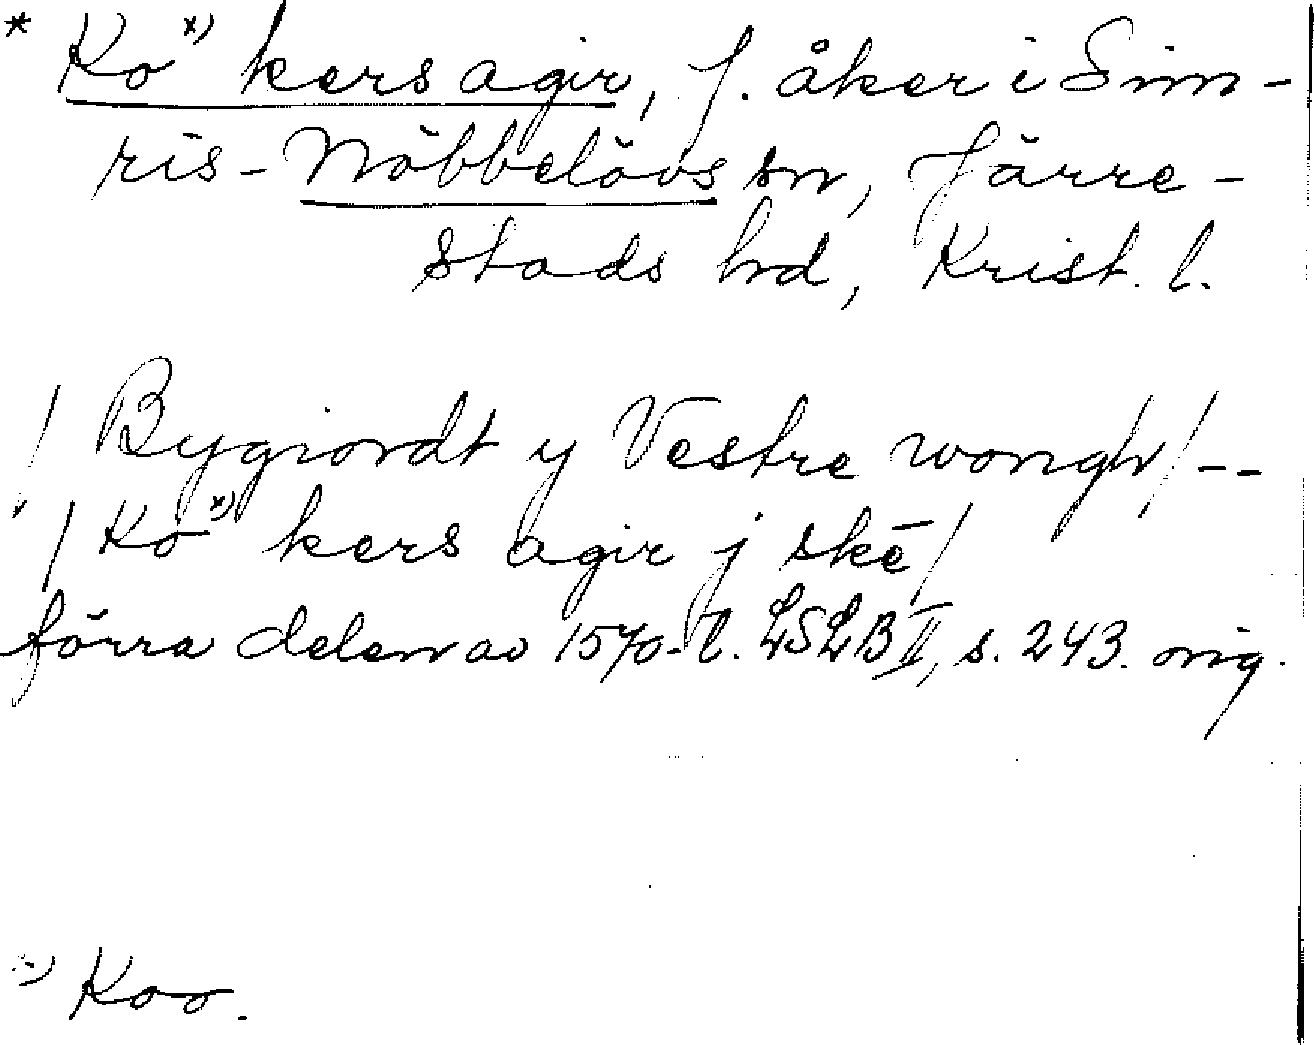 * Ko x) kers agir, f. åker i Sim-
ris-Nöbbelövs sn, Järre-
stads hd, Krist. l.
/ Bygiordt y Vestre wongh /--
/ Ko x) kers agir j skē /
förra delen av 1570-t. LSLB II, s. 243. orig.
x) Koo.